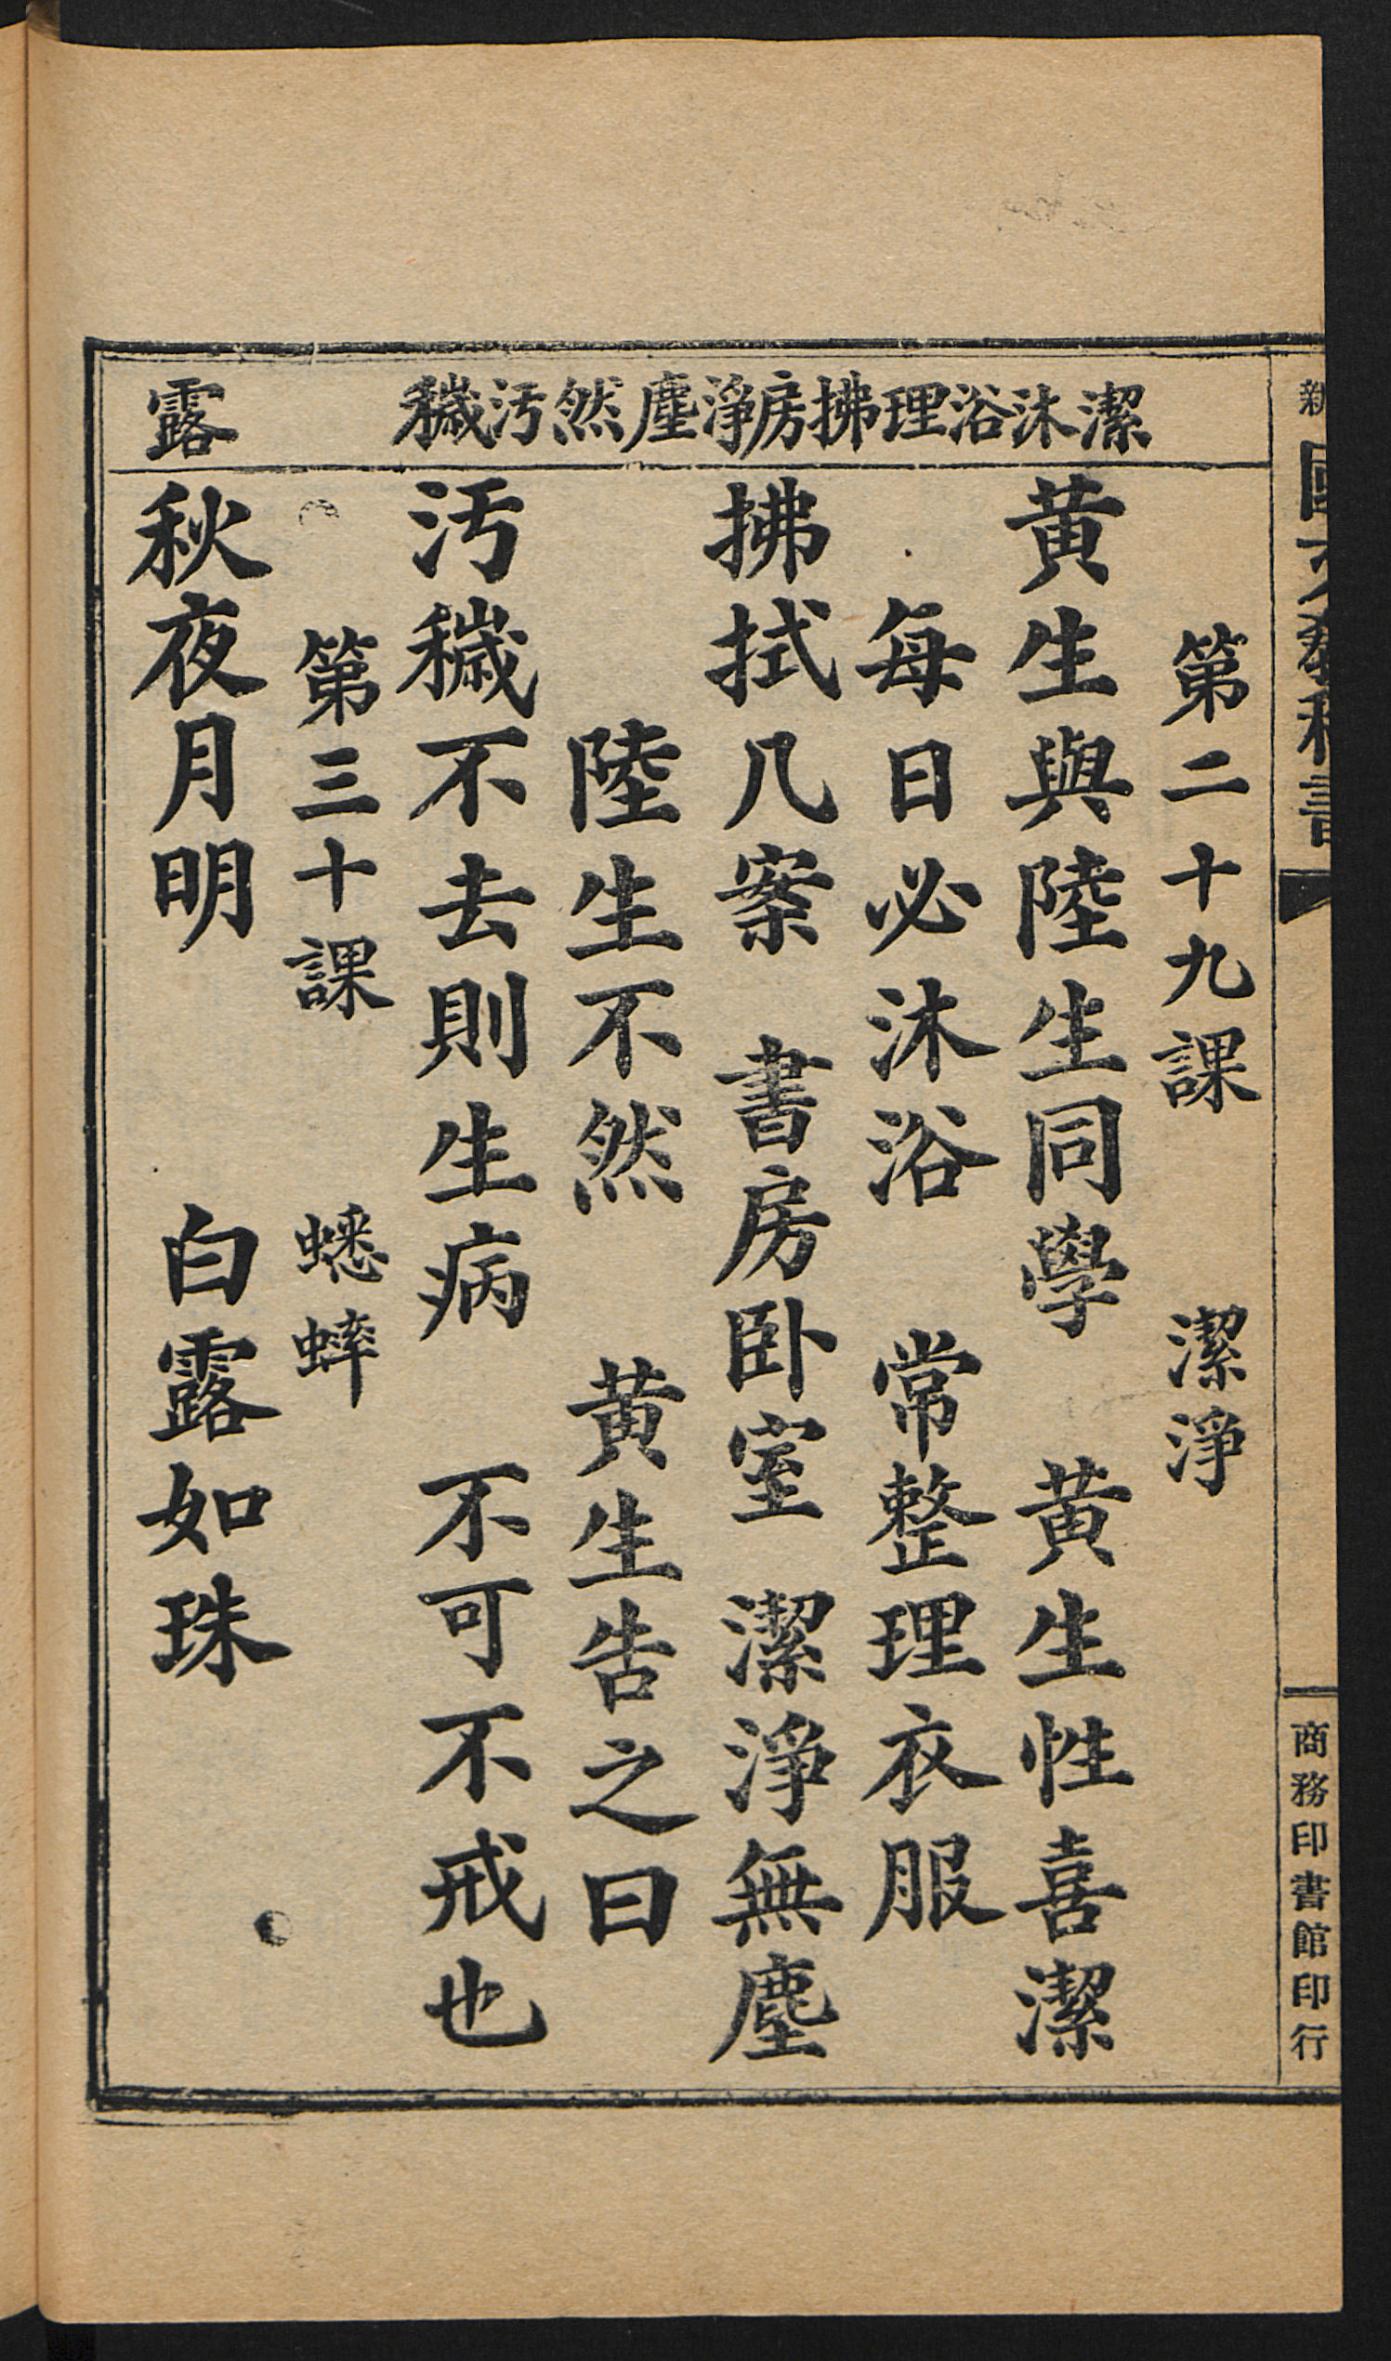 國文教科書
商務印書館印行
潔沐浴理拂房淨塵然汚穢
露
第二十九課 潔淨
黃生與陸生同學 黃生性喜潔
每日必沐浴 常整理衣服
拂拭几案 書房卧室 潔淨無塵
陸生不然 黃生告之曰
汚穢不去則生病 不可不戒也
第三十課 蟋蟀
秋夜月明 白露如珠